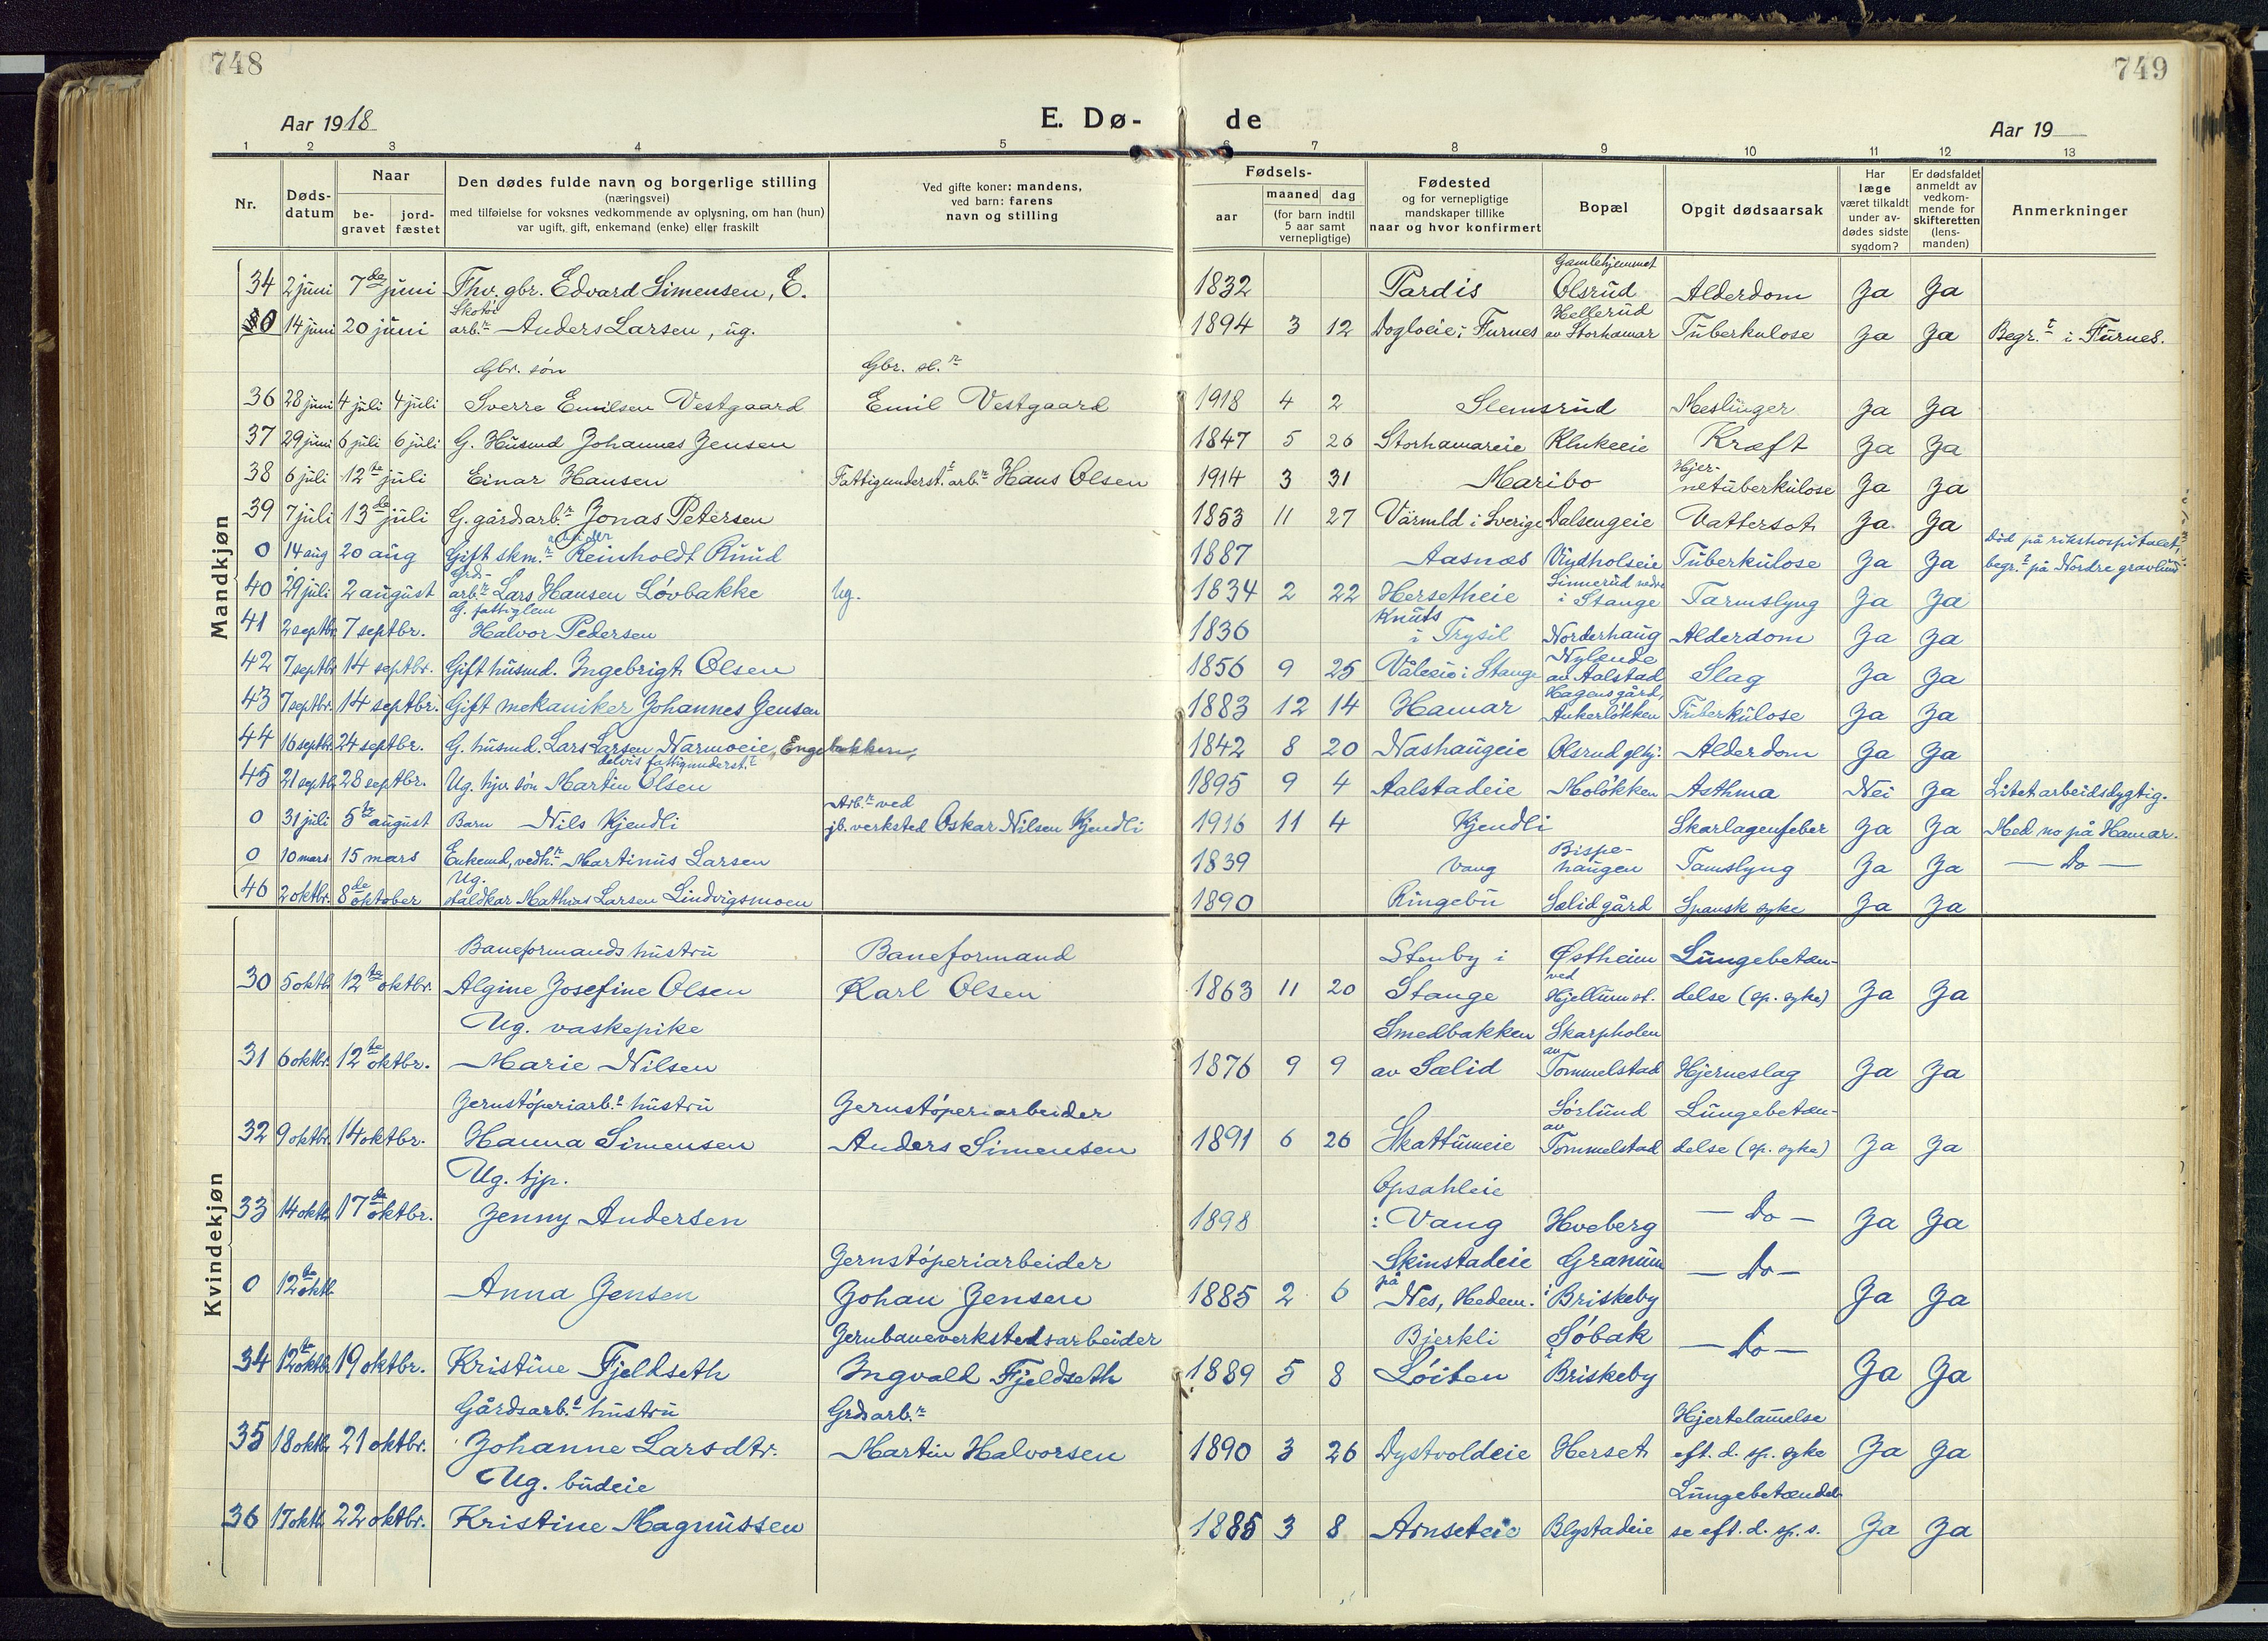 748
749
Aar 1918
E. Dø-
de
Aar 19
1 2 3 4 5 6 7 8 9 10 11 12 13
Nr.
Døds-
datum
Naar
be-
gravet
jord-
fæstet
Den dødes fulde navn og borgerlige stilling
(næringsvei)
med tilføielse for voksnes vedkommende av oplysning, om han (hun)
var ugift, gift, enkemand (enke) eller fraskilt
Ved gifte koner: mandens,
ved barn: farens
navn og stilling
Fødsels-
aar
maaned dag
(for barn indtil
5 aar samt
vernepligtige)
Fødested
og for vernepligtige
mandskaper tillike
naar og hvor konfirmert
Bopæl
Opgit dødsaarsak
Har
læge
været tilkaldt
under av-
dødes sidste
sygdom?
Er dødsfaldet
anmeldt av
vedkom-
mende for
skifteretten
(lens-
manden)
Anmerkninger
Mandkjøn
Gamlehjemmet
34 2 juni 7de juni Fhv. gbr. Edvard Simensen, E. 1832 Pardis Olsrud Alderdom Ja Ja
Skotøi Hellerud
0 14 juni 20 juni arb.r Anders Larsen, ug. 1894 3 12 Dogloeie i Furnes av Storhamar Tuberkulose Ja Ja Begr.t i Furnes.
Gbr. søn Gbr. sl.r
36 28 juni 4 juli 4 juli Sverre Emilsen Vestgaard Emil Vestgaard 1918 4 2 Slemsrud Meslinger Ja Ja
37 29 juni 6 juli 6 juli G. Husmd Johannes Jensen 1847 5 26 Storhamareie Klukeeie Kræft Ja Ja
Hjer-
38 6 juli 12te juli Einar Hansen Fattigunderst.t arb.r Hans Olsen 1914 3 31 Maribo netuberkulose Ja Ja
39 7 juli 13de juli G. gårdsarb.r Jonas Petersen 1853 11 27 Värmld i Sverige Dalsengeie Vattersot Ja Ja
arbeider Død på rikshospitalet,
0 14 aug 20 aug Gift skm.r Reinholdt Ruud 1887 Aasnæs Vidholseie Tuberkulose Ja Ja begr.t på Nordre gravlund
Grds- Sinnerud nedre
40 29 juli 2 august arb.r Lars Hansen Løvbakke Ug. 1834 2 22 Hersetheie i Stange Tarmslyng Ja Ja
G. fattiglem Knuts
41 2 septbr. 7 septbr. Halvor Pedersen 1836 i Trysil Norderhaug Alderdom Ja Ja
Nylende
42 7 septbr 14 septbr. Gift husmd. Ingebrigt Olsen 1856 9 25 Våleeie i Stange av Aalstad Slag Ja Ja
Hagensgård,
43 7 septbr. 14 septbr. Gift mekaniker Johannes Jensen 1883 12 14 Hamar Ankerløkken Tuberkulose Ja Ja
44 16 septbr 24 septbr. G. husmd. Lars Larsen Narmoeie, Engebakken, 1842 8 20 Nashaugeie Olsrud glhj. Alderdom Ja Ja
delvis fattigunderst.t
45 21 septb 28 septbr. Ug. hjv. søn Martin Olsen 1895 9 4 Aalstadeie Moløkken Asthma Nei Ja Litet arbeidsdygtig.
Arb.r ved
0 31 juli 5te august Barn Nils Kjendli jb. verksted Oskar Nilsen Kjendli 1916 11 4 Kjendli Skarlagenfeber Ja Ja Med no på Hamar.
Bispe-
0 10 mars 15 mars Enkemd, vedh.r Martinus Larsen 1839 Vang haugen Tarmslyng Ja Ja — Do —
Ug.
46 2 oktbr. 8de oktober staldkar Mathias Larsen Lindvigsmoen 1890 Ringebu Sælid gård Spansk syke Ja Ja
Kvindekjøn
Baneformands hustru Baneformand Stenby i Østheim Lungebetæn-
30 5 oktb. 12te oktbr. Algine Josefine Olsen Karl Olsen 1863 11 20 Stange ved Hjellum st. delse (sp. syke) Ja Ja
Ug. vaskepike Smedbakken Skarpholen
31 6 oktbr. 12te oktbr. Marie Nilsen 1876 9 9 av Sælid av Tommelstad Hjerneslag Ja Ja
Jernstøperiarb.s hustru Jernstøperiarbeider Sørlund Lungebetæn-
32 9 oktbr. 14 oktbr. Hanna Simensen Anders Simensen 1891 6 26 Skattumeie av Tommelstad delse (sp. syke) Ja Ja
Ug. tjp. Opsahleie
33 14 oktb 17de oktbr. Jenny Andersen 1898 i Vang Hveberg — Do — Ja Ja
Jernstøperiarbeider Skinstadeie Granum
0 12te oktb Anna Jensen Johan Jensen 1885 2 6 på Nes, Hedem. i Briskeby — Do — Ja Ja
Jernbaneverkstedsarbeider Bjerkli Søbak
34 12te oktb 19 oktbr. Kristine Fjeldseth Ingvald Fjeldseth 1889 5 8 Løiten i Briskeby — Do — Ja Ja
Gårdsarb.s hustru Grdsarb.r Hjertelamelse
35 18 oktb 21 oktbr. Johanne Larsdtr. Martin Halvorsen 1890 3 26 Dystvoldeie Herset eft. d. sp. syke Ja Ja
Ug. budeie Lungebetændel-
36 17 oktb 22 oktbr. Kristine Magnussen 1885 3 8 Arnseteie Blystadeie se eft. d. sp. s. Ja Ja